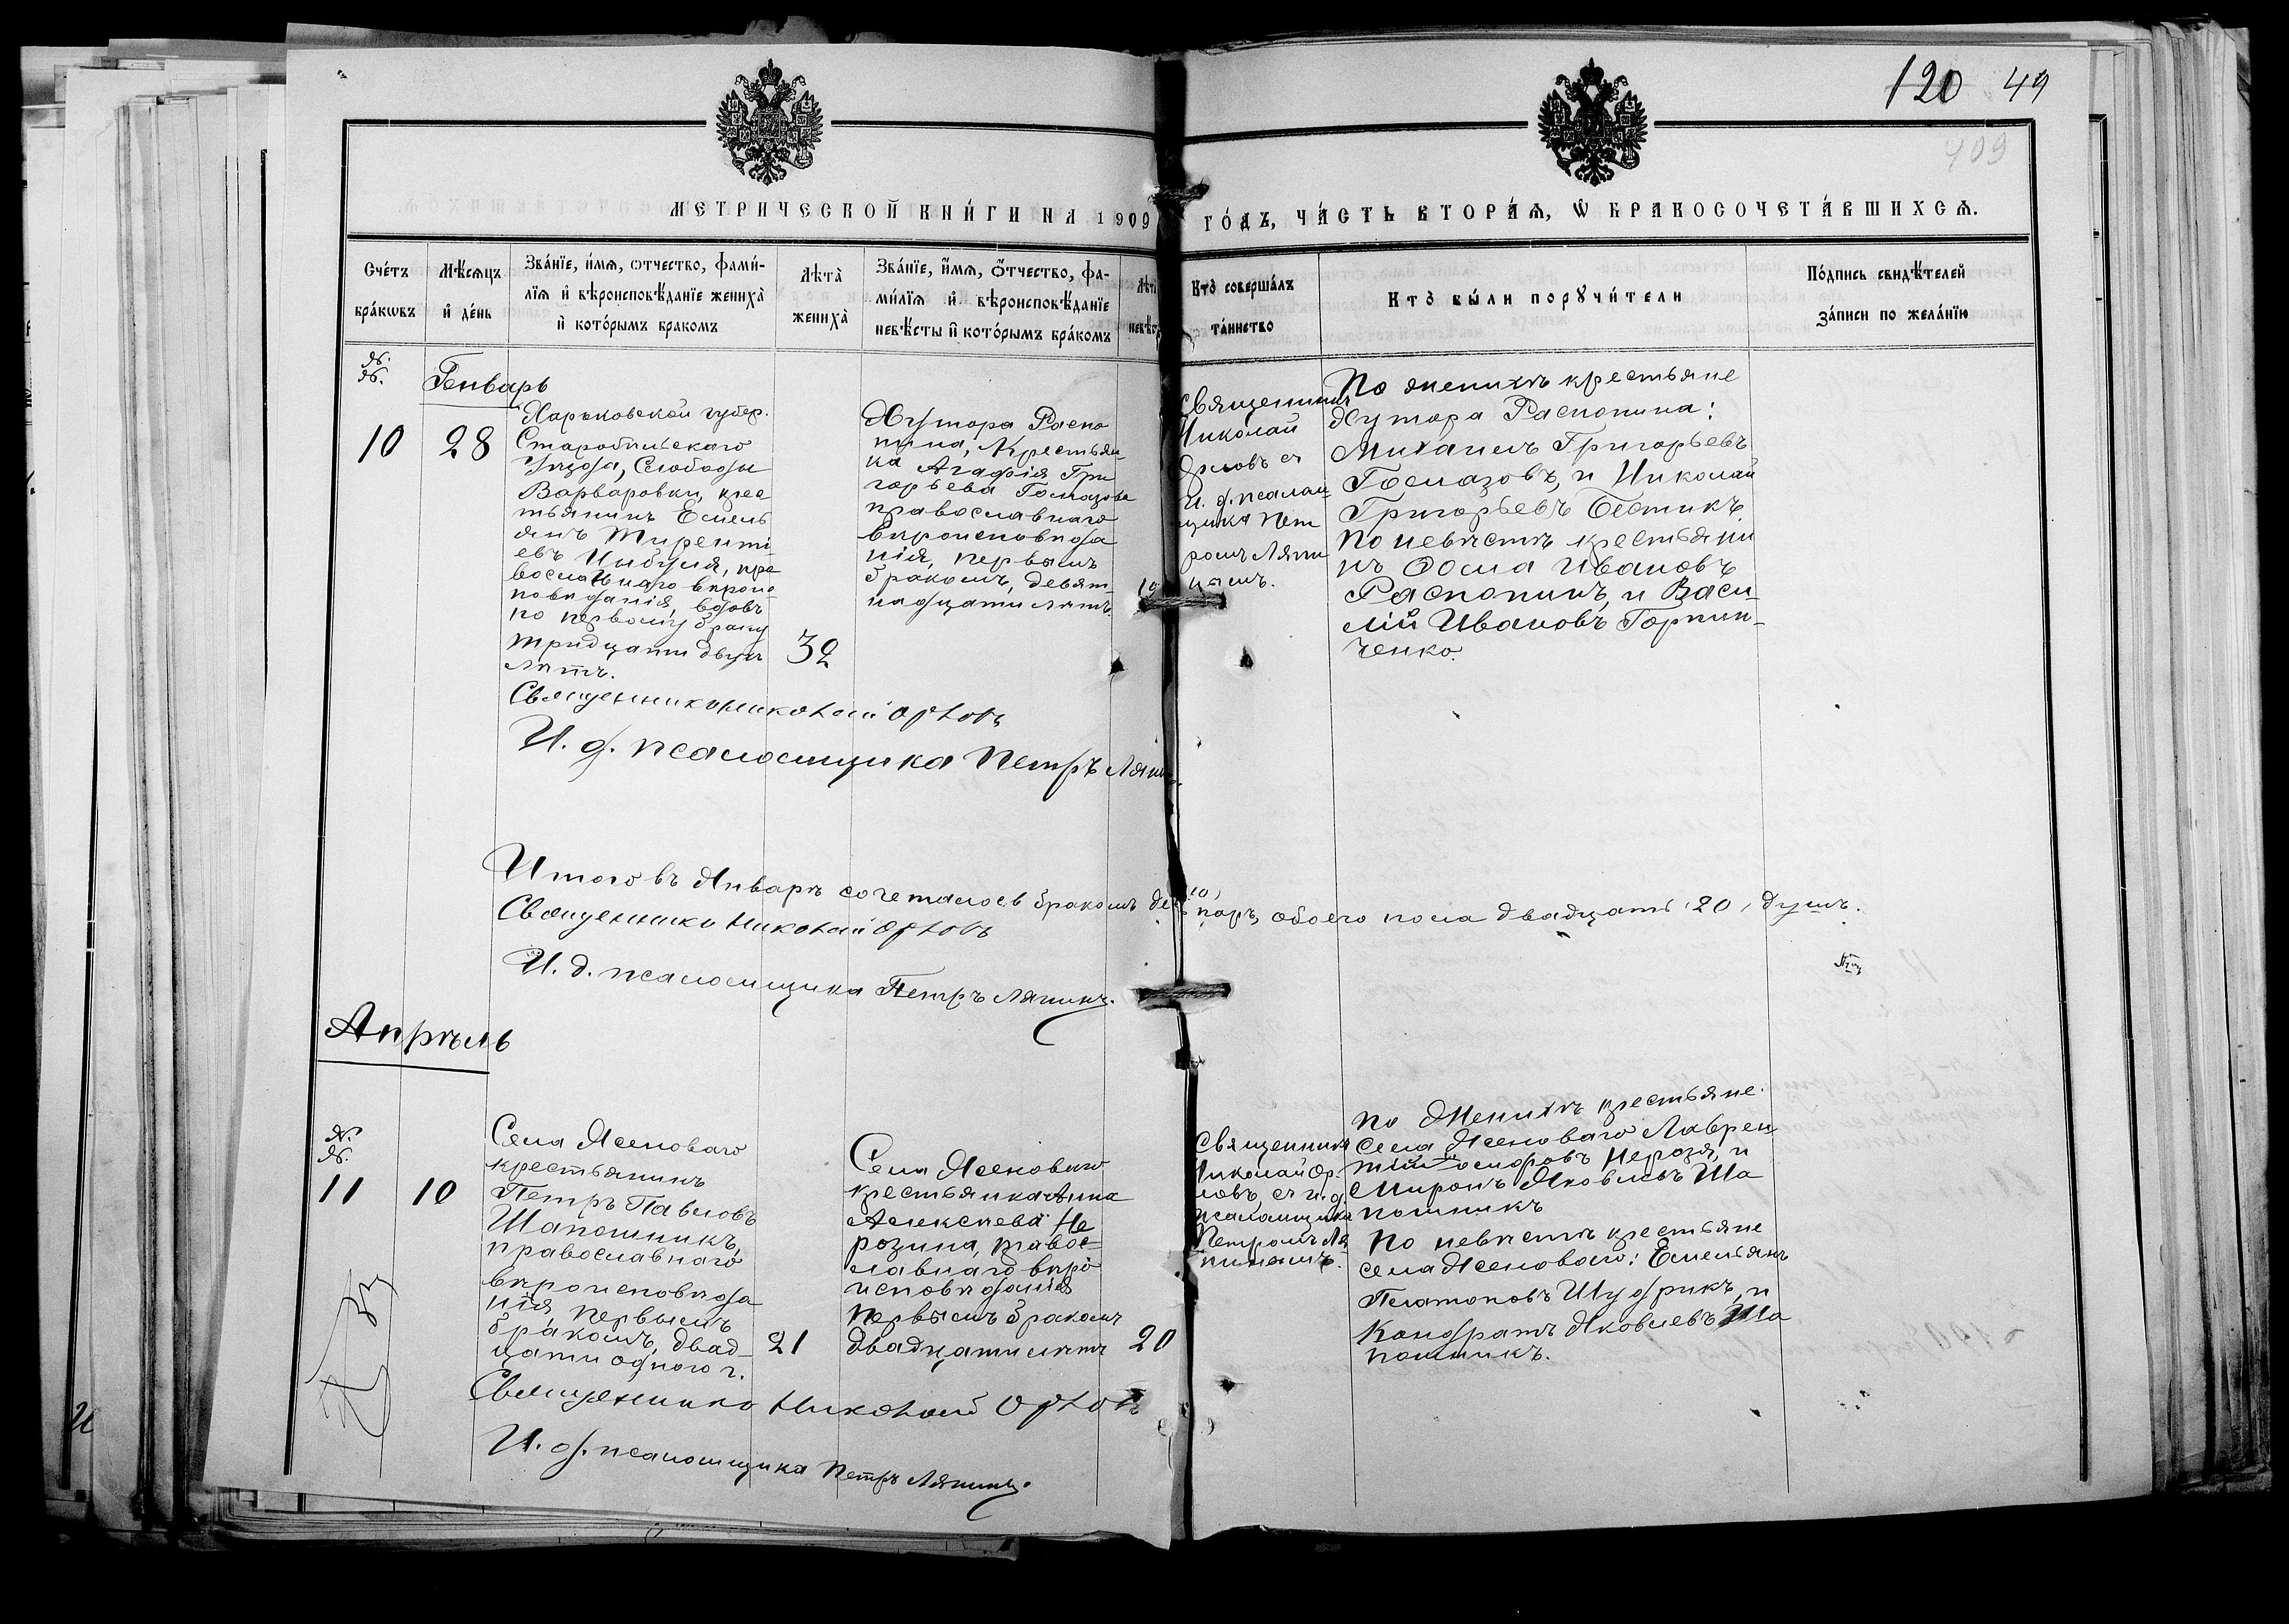 120 49
409
МЕТРИЧЕСКОЙ КНИ́ГИ НА 1909 ГО́ДЪ, ЧА́СТЬ ВТОРА́Ѧ, Ѡ БРАКОСОЧЕТА́ВШИХСѦ.
Сче́тъ
бра́кѡвъ
Мѣ́сѧцъ
и҆ де́нь
Зва́нїе, и҆́мѧ, ѻтчество, фами́-
лїѧ и҆ вѣроисповѣ́данїе жениха̀
и҆ кото́рымъ бракомъ
Лѣта̀
жениха̀
Зва́нїе, и҆́мѧ, ѻ҆́тчество, фа-
ми́лїѧ и҆ вѣроисповѣ́данїе
невѣ́сты и҆ кото́рымъ бра́комъ
Лѣта̀
Кто̀ соверша́лъ
та́инство
Кто̀ бы́ли порꙋчи́тели
По́дпись свидѣ́телей
за́писи по жела́нїю
Генварь
10
28
Харьковской губер.
Старобѣльскаго
уѣзда, Слободы
Варваровки, крес
тьянинъ Емель
янъ Тиренті
евъ Цыбуля, пра
вославнаго вѣроис
повѣданія, вдовъ
по первому браку
тридцати двухъ
лѣтъ.
32
Хутора Распо
пина, Крестьян
ка Агафія Гри
горьева Гомазова
православнаго
вѣроисповѣда
нія, первымъ
бракомъ, девят
надцати лѣтъ.
19
Священникъ
Николай
Орловъ съ
И. д. псалом
щика Пет
ромъ Ляпи
нымъ.
По женихѣ крестьяне
Хутора Распопина:
Михаилъ Григорьевъ
Гомазовъ, и Николай
Григорьевъ Бестикъ
По невѣстѣ крестьяни
нъ Ѳома Ивановъ
Распопинъ, и Васи-
лій Ивановъ Горпин-
ченко.
Священникъ Николай Орловъ
И. д. псаломщика Петръ Ляпин
Итого въ Январѣ сочеталось бракомъ дес 10, паръ, обоего пола двадцать, 20, душъ.
Священникъ Николай Орловъ
И. д. псаломщика Петръ Ляпинъ.
Апрѣль
11
10
Села Ясеноваго
крестьянинъ
Петръ Павловъ
Шапошникъ,
православнаго
вѣроисповѣда
нія, первымъ
бракомъ, двад-
цати одного г.
21
Села Ясеноваго
крестьянка Анна
Алексѣева Не
розина, правос-
лавнаго вѣро
исповѣданія
первымъ бракомъ
двадцати лѣтъ
20
Священникъ
Николай Ор-
ловъ, съ и. д.
псаломщика
Петромъ Ля
пинымъ.
По Женихѣ крестьяне
села Ясеноваго Лаврен
тій Ѳомировъ Нерозя, и
Миронъ Яковлевъ Ша
пошникъ
По невѣстѣ крестьяне
села Ясеноваго: Емельянъ
Платоновъ Шудрикъ, и
Кондратъ Яковлевъ Ша
пошникъ.
Священникъ Николай Орловъ
И. д. псаломщика Петръ Ляпинъ.